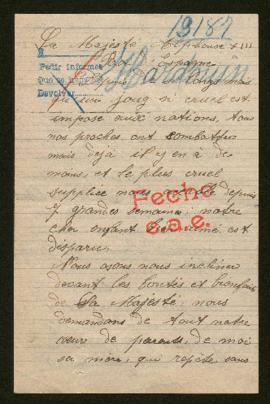 19187
Sa Majesté Alphonse XIII
Roi Espagne
Pedir informes
Devolver
Hardouin
Depuis longs mois
que un joug si cruel est
imposé aux nations, tous
nos proches ont combattu
mais déjà il y en a de
moins, et le plus cruel
supplice nous depuis
7 grandes semaines: notre
cher enfant est
disparu.
Fecha
s.a.e.
Nous osons nous incliner
devant les bontés et bienfaits
de Sa Majesté; nous
demandons de tout notre
cœur de parents, de moi
sa mère, qui répète sans